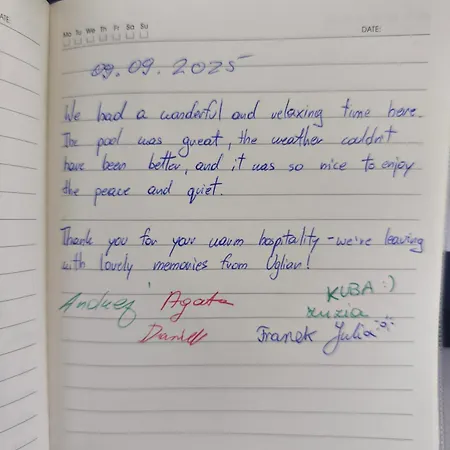 ATE:
Mo Tu We Th Fr Sa Su
DATE:
09.09.2025
We had a wanderful and relaxing time here.
The pool was great, the weather couldn't
have been better, and it was so nice to enjoy
the peace and quiet.
Thank you for your warm hospitality - we're leaving
with lovely memories from Uglian!
Andrzej Agata KUBA :)
zuzia
Daniel Franek Julia